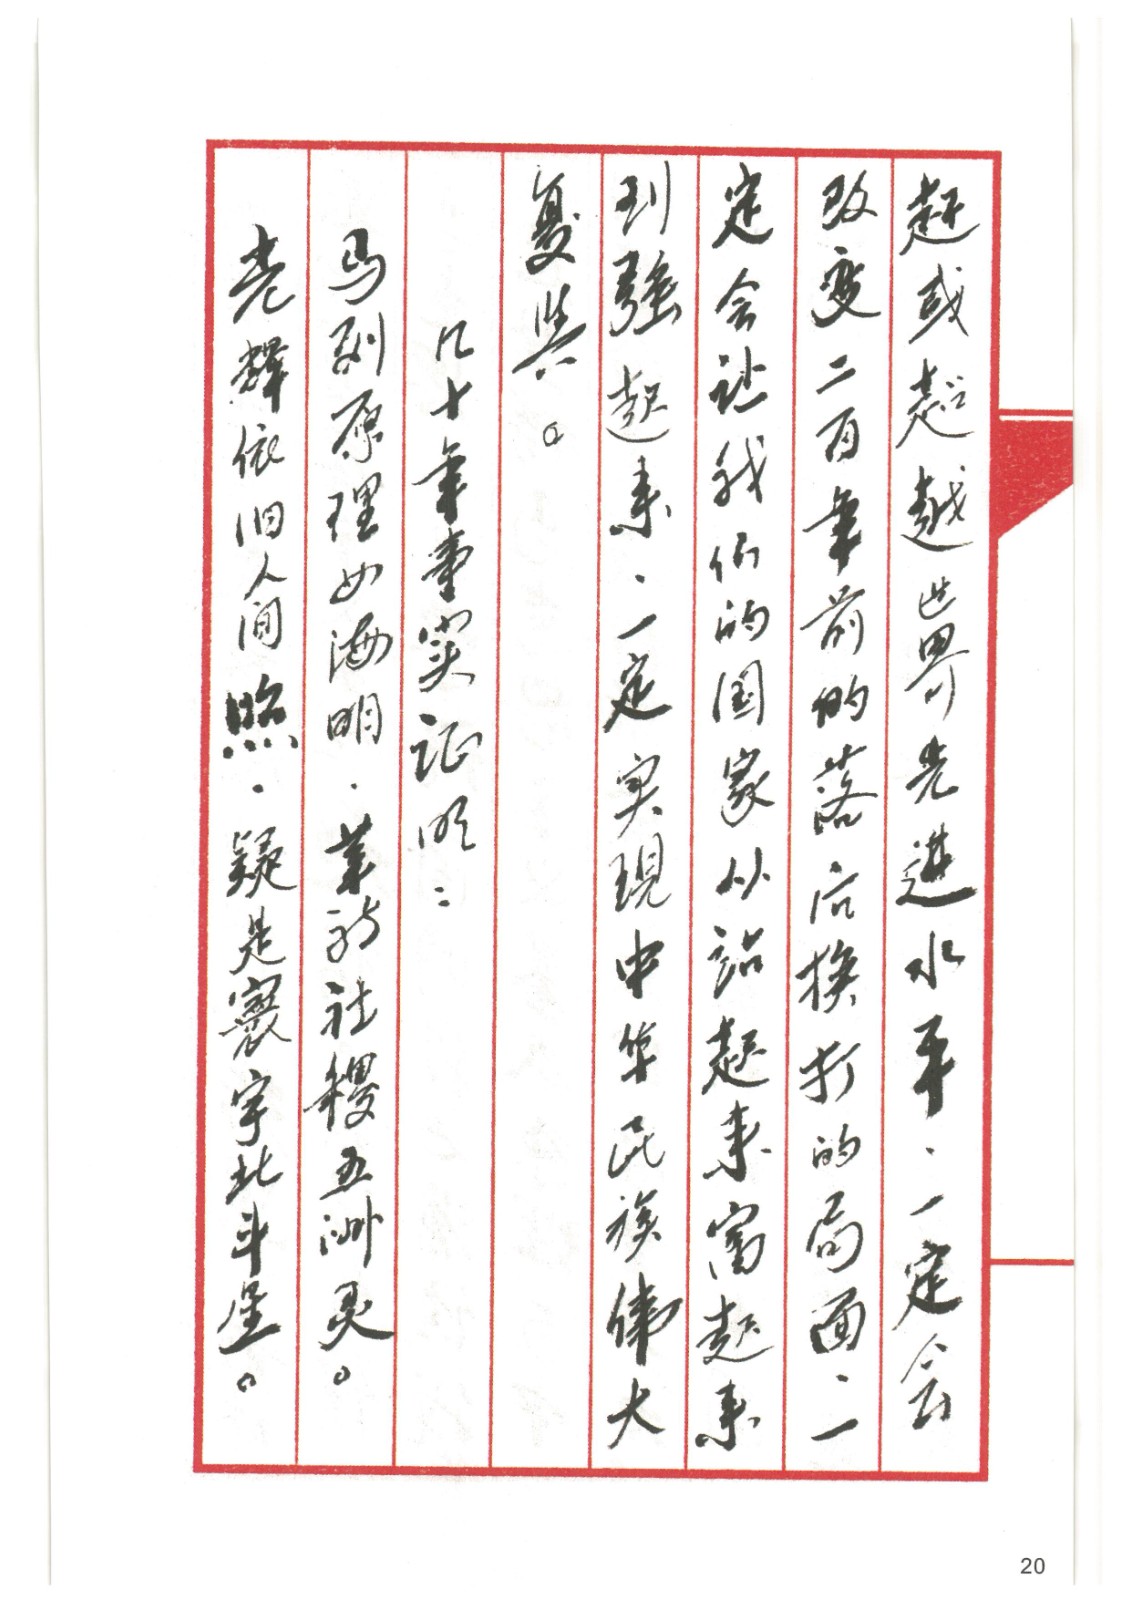 赶或超越世界先进水平.一定会
改变二百年前的落后挨打的局面.一
定会让我们的国家从站起来富起来
到强起来.一定实现中华民族伟大
复兴。
几十年事实证明：
马列原理如海明.革新社稷五洲灵。
光辉依旧人间照.疑是寰宇北斗星。
20